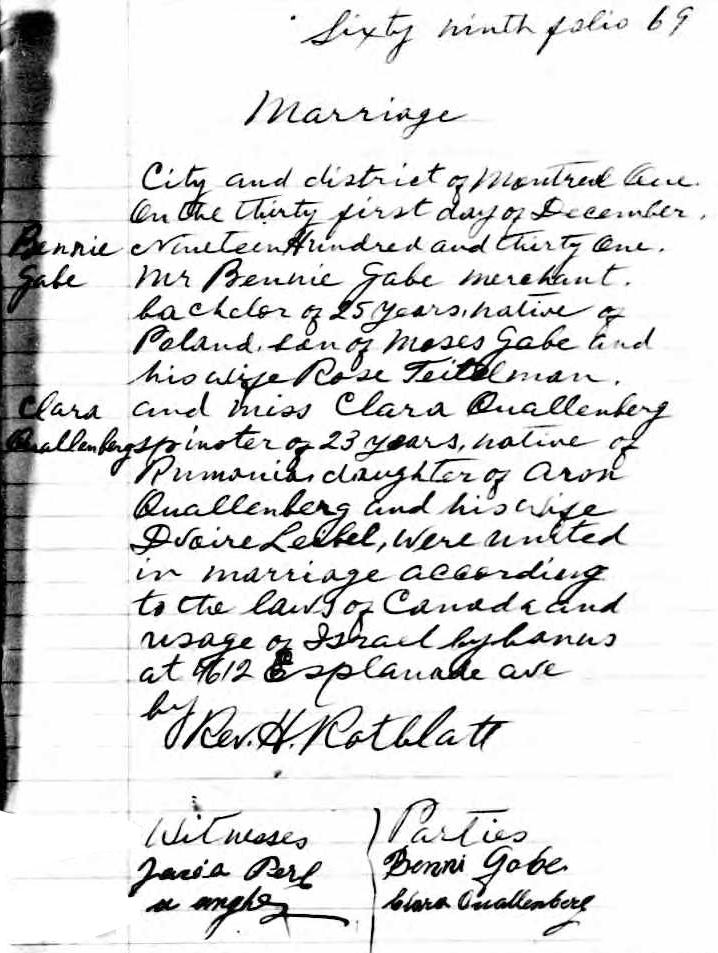 Sixty ninth folio 69
Marriage
City and district of Montreal Que.
On the thirty first day of December.
Bennie Nineteen Hundred and thirty One.
Gabe Mr Bennie Gabe merchant.
bachelor of 25 years, native of
Poland. son of Moses Gabe and
his wife Rose Teitelman.
Clara and Miss Clara Quallenberg
Quallenberg spinster of 23 years, native of
Rumania, daughter of Aron
Quallenberg and his wife
Dvoire Leibel, were united
in marriage according
to the laws of Canada and
usage of Israel by banns
at 4612 Esplanade ave
by
Rev. H. Rotblatt
Witnesses
Perl
Parties
Benni Gabe
Clara Quallenberg